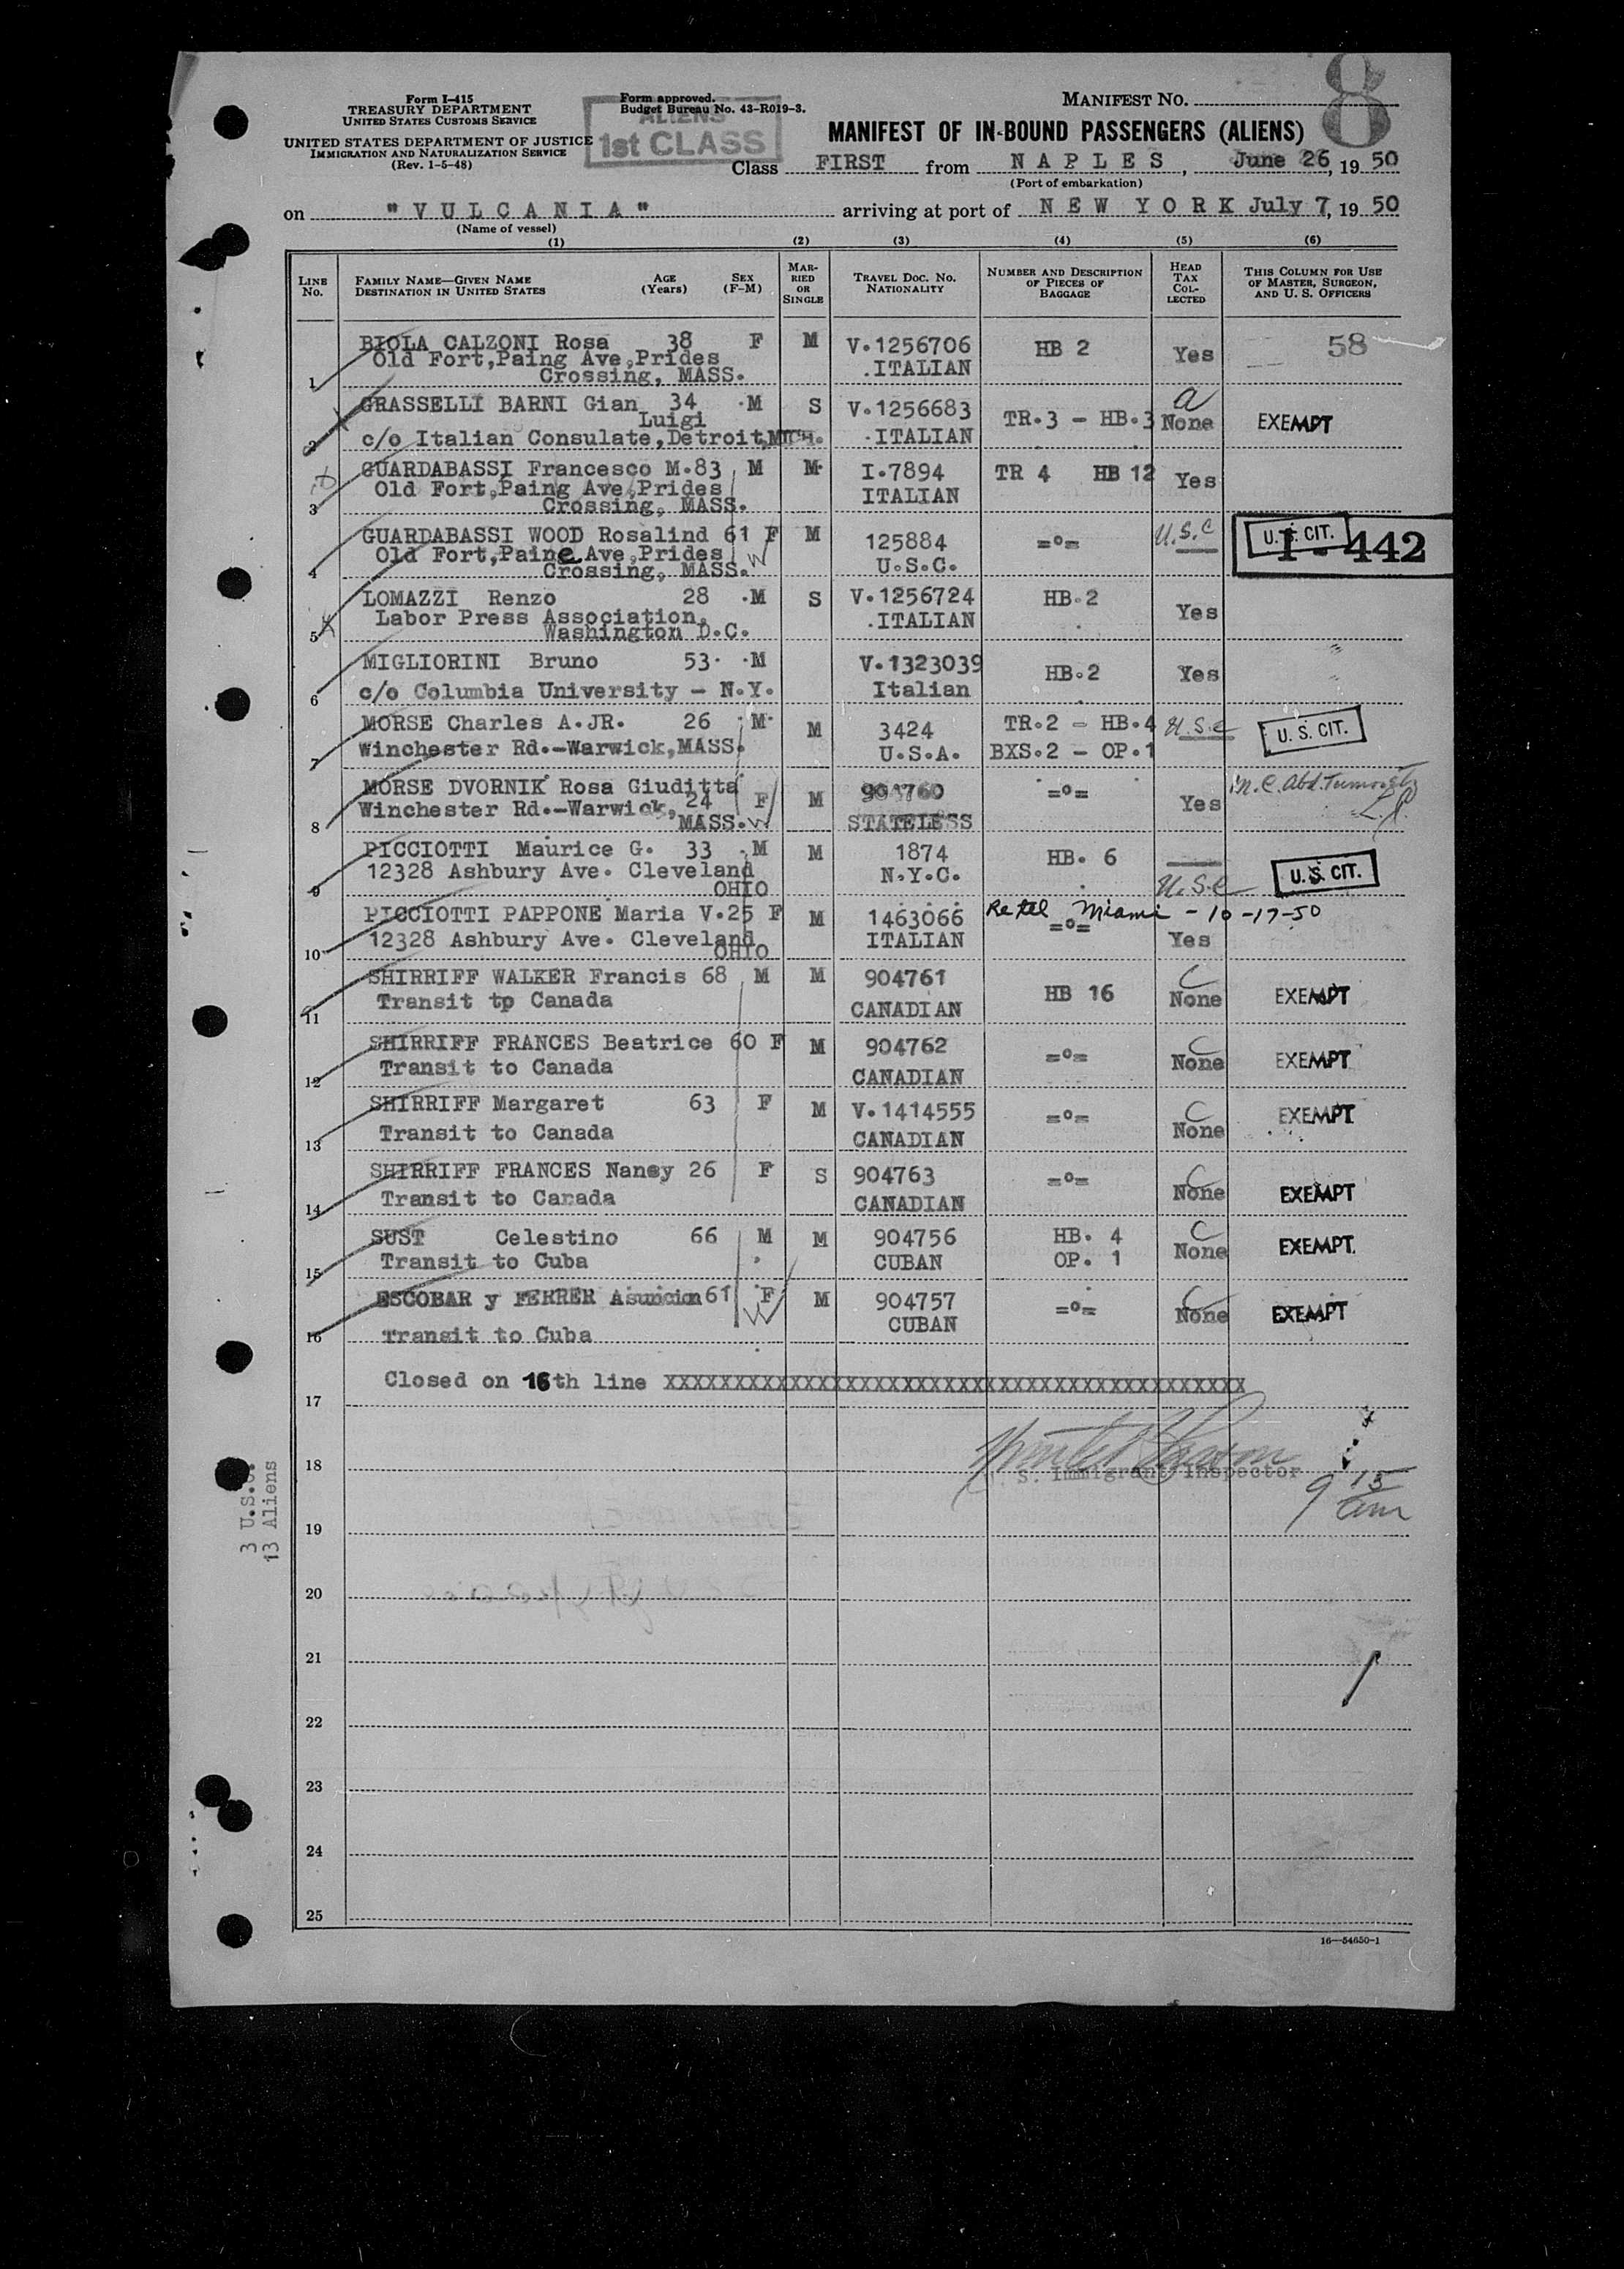 8
Form I-415
TREASURY DEPARTMENT
UNITED STATES CUSTOMS SERVICE
UNITED STATES DEPARTMENT OF JUSTICE
IMMIGRATION AND NATURALIZATION SERVICE
(Rev. 1-5-48)
Form approved.
Budget Bureau No. 43-R019-3.
ALIENS
1st CLASS
MANIFEST NO.
MANIFEST OF IN-BOUND PASSENGERS (ALIENS)
Class FIRST from NAPLES, June 26, 1950
(Port of embarkation)
on "VULCANIA" arriving at port of NEW YORK July 7, 1950
(Name of vessel)
(1) (2) (3) (4) (5) (6)
LINE No.
FAMILY NAME—GIVEN NAME DESTINATION IN UNITED STATES
AGE (Years)
SEX (F-M)
MARRIED OR SINGLE
TRAVEL DOC. NO. NATIONALITY
NUMBER AND DESCRIPTION OF PIECES OF BAGGAGE
HEAD TAX COLLECTED
THIS COLUMN FOR USE OF MASTER, SURGEON, AND U. S. OFFICERS
BIOLA CALZONI Rosa 38 F M V.1256706 HB 2 Yes 58
Old Fort,Paing Ave,Prides .ITALIAN
1 Crossing, MASS.
GRASSELLI BARNI Gian 34 .M S V.1256683 TR.3 - HB.3 a None EXEMPT
Luigi
2 c/o Italian Consulate,Detroit,MICH. .ITALIAN
GUARDABASSI Francesco M.83 M M. I.7894 TR 4 HB 12 Yes
Old Fort,Paing Ave,Prides ITALIAN
3 Crossing, MASS.
GUARDABASSI WOOD Rosalind 61 F M 125884 =o= U.S.C U. S. CIT. I-442
Old Fort,Paine Ave,Prides W
4 Crossing, MASS. U.S.C.
LOMAZZI Renzo 28 .M S V.1256724 HB.2 Yes
Labor Press Association, .ITALIAN
5 Washington D.C.
MIGLIORINI Bruno 53. .M V.1323039 HB.2 Yes
6 c/o Columbia University - N.Y. Italian
MORSE Charles A.JR. 26 .M. M 3424 TR.2 - HB.4 U.S.C U. S. CIT.
7 Winchester Rd.-Warwick,MASS. U.S.A. BXS.2 - OP.1
MORSE DVORNIK Rosa Giuditta M 904760 =o= Yes
Winchester Rd.-Warwick, 24 F
8 MASS. W STATELESS
PICCIOTTI Maurice G. 33 .M M 1874 HB. 6 U.S.C U. S. CIT.
12328 Ashbury Ave. Cleveland N.Y.C.
9 OHIO
PICCIOTTI PAPPONE Maria V.25 F M 1463066 Re tel Miami - 10-17-50
12328 Ashbury Ave. Cleveland ITALIAN =o= Yes
10 OHIO
SHIRRIFF WALKER Francis 68 M M 904761 HB 16 C None EXEMPT
11 Transit to Canada CANADIAN
SHIRRIFF FRANCES Beatrice 60 F M 904762 =o= C None EXEMPT
12 Transit to Canada CANADIAN
SHIRRIFF Margaret 63 F M V.1414555 =o= C None EXEMPT
13 Transit to Canada CANADIAN
SHIRRIFF FRANCES Nancy 26 F S 904763 =o= C None EXEMPT
14 Transit to Canada CANADIAN
SUST Celestino 66 M M 904756 HB. 4 C None EXEMPT.
15 Transit to Cuba CUBAN OP. 1
ESCOBAR y FERRER Asuncion 61 F M 904757 =o= C None EXEMPT
16 Transit to Cuba W CUBAN
Closed on 16th line XXXXXXXXXXXXXXXXXXXXXXXXXXXXXXXXXXXXXXXXXXXXXXXXXXX
17
18
S. Immigrant Inspector
9 15 am
3 U.S.C.
13 Aliens
19
20
21
22
23
24
25
16—54650-1